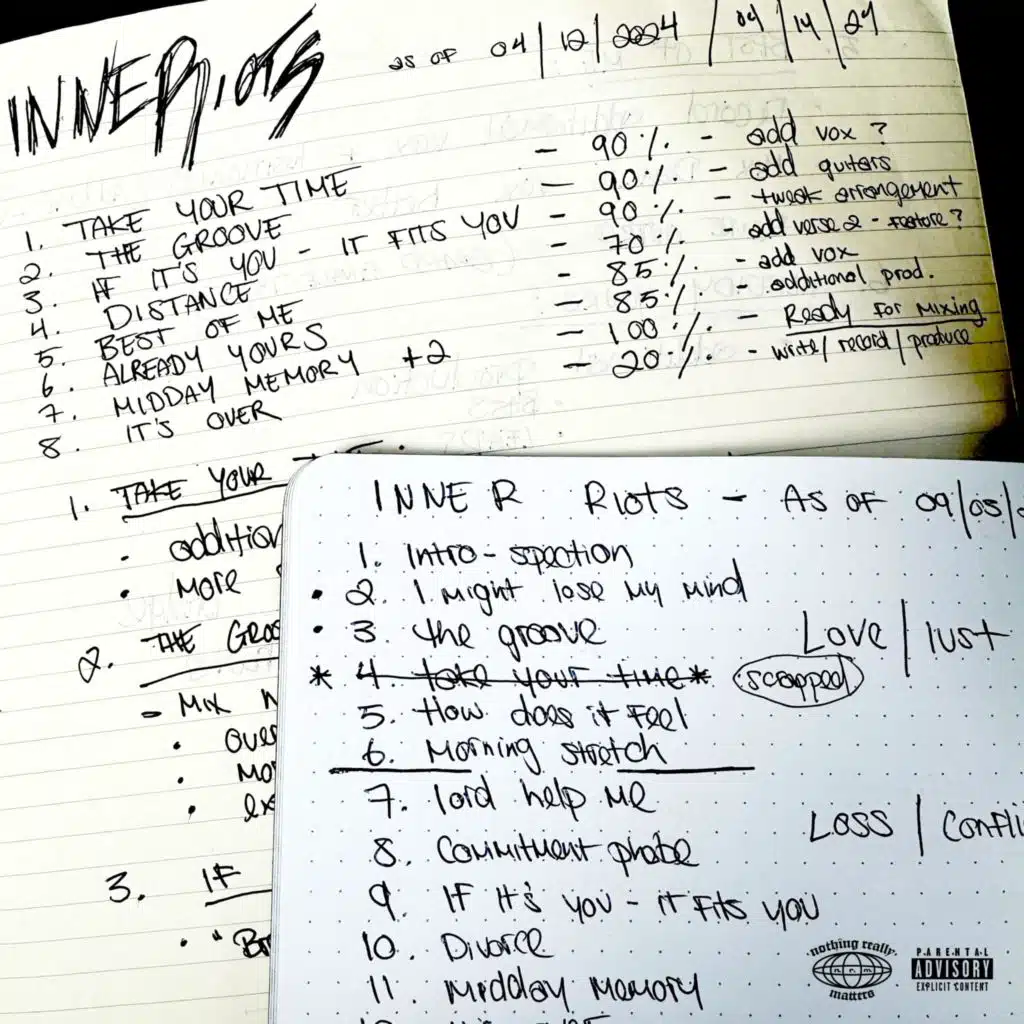 INNER RIOTS as of 04/12/2024 / 04/14/24
1. TAKE YOUR TIME - 90% - add vox ?
2. THE GROOVE - 90% - add guitars
3. IF IT'S YOU - IT FITS YOU - 90% - tweak arrangement
4. DISTANCE - 70% - add verse 2 - feature ?
5. BEST OF ME - 85% - add vox
6. ALREADY YOURS - 85% - additional prod.
7. MIDDAY MEMORY +2 - 100% - Ready for mixing
8. IT'S OVER - 20% - write/record/produce
1. TAKE YOUR
• addition
• more
2. THE GROO
- MIX
• over
• mo
• ex
3. IF
• "Br
INNER RIOTS - AS OF 09/05/
1. Intro-spection
• 2. I might lose my mind
• 3. the groove
Love / lust
* 4 take your time * scrapped
5. How does it feel
6. Morning stretch
7. lord help me
Loss / Confli
8. Commitment phobe
9. IF It's you - it fits you
10. Divorce
11. Midday memory
nothing really
n r m
matters
PARENTAL
ADVISORY
EXPLICIT CONTENT